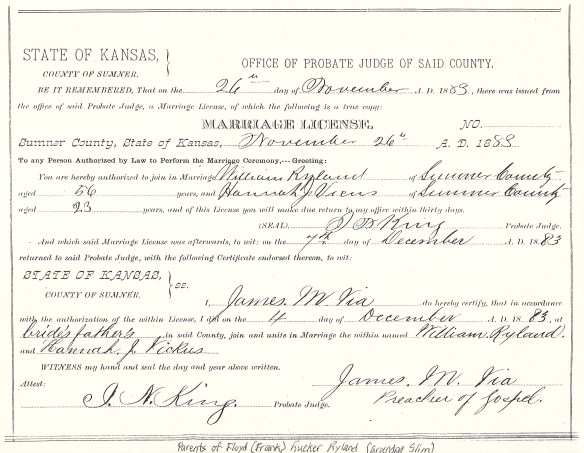 STATE OF KANSAS,
COUNTY OF SUMNER.
OFFICE OF PROBATE JUDGE OF SAID COUNTY.
BE IT REMEMBERED, That on the 26th day of November A. D. 1883, there was issued from
the office of said Probate Judge, a Marriage License, of which the following is a true copy:
MARRIAGE LICENSE. NO.
Sumner County, State of Kansas, November 26th A. D. 1883
To any Person Authorized by Law to Perform the Marriage Ceremony,---Greeting:
You are hereby authorized to join in Marriage William Ryland of Sumner County
aged 56 years, and Hannah J of Sumner County
aged 23 years, and of this License you will make due return to my office within thirty days.
(SEAL) King Probate Judge.
And which said Marriage License was afterwards, to wit: on the 7th day of December A. D. 1883
returned to said Probate Judge, with the following Certificate endorsed thereon, to wit:
STATE OF KANSAS,
COUNTY OF SUMNER. ss.
I, James. M. Via do hereby certify, that in accordance
with the authorization of the within License, I did on the 4 day of December A. D. 1883, at
bride's father's in said County, join and unite in Marriage the within named William Ryland.
and Hannah. J. Vickus
WITNESS my hand and seal the day and year above written.
James. M. Via
Attest: Preacher of Gospel.
J. N. King. Probate Judge.
Parents of Floyd (Frank) Rucker Ryland (Grandpa Slim)